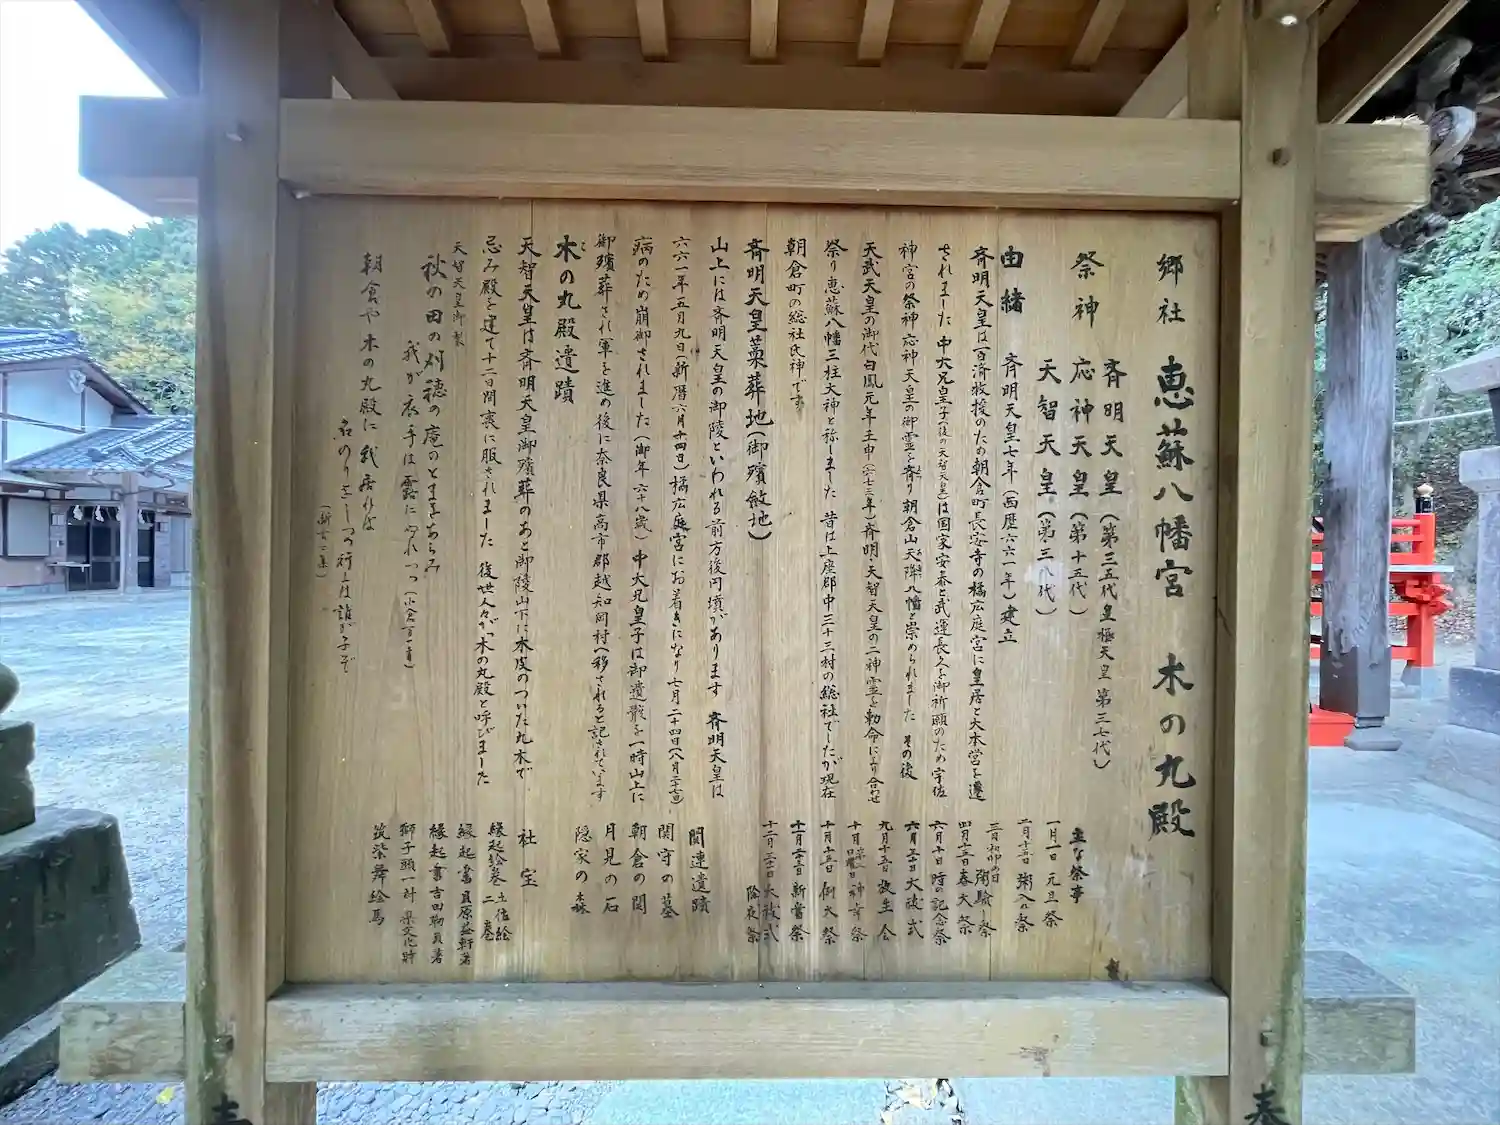 郷社 恵蘇八幡宮 木の丸殿
祭神
斉明天皇(第三五代皇極天皇 第三七代)
応神天皇(第十五代)
天智天皇(第三八代)
由緒 斉明天皇七年(西歴六六一年)建立
斉明天皇は百済救援のため朝倉町長安寺の橘広庭宮に皇居と大本営を遷
されました 中大兄皇子(後の天智天皇)は国家安泰と武運長久を御祈願のため宇佐
神宮の祭神応神天皇の御霊を斉り 朝倉山天降八幡と崇められました その後
天武天皇の御代白鳳元年壬申(六七三年)斉明・天智天皇の二神霊を勅命により合わせ
祭り恵蘇八幡三柱大神と称しました 昔は上座郡中三十三村の総社でしたが現在
朝倉町の総社氏神です
斉明天皇藁葬地(御殯斂地)
山上には斉明天皇の御陵といわれる前方後円墳があります 斉明天皇は
六六一年五月九日(新暦六月十四日)橘広庭宮にお着きになり七月二十四日(八月二十七日)
病のため崩御されました(御年六十八歳)中大兄皇子は御遺骸を一時山上に
御殯葬され軍を進め後に奈良県高市郡越知岡村へ移されると記されています
木の丸殿遺蹟
天智天皇は斉明天皇御殯葬のあと御陵山下に木皮のついた丸木で
忌み殿を建て十二日間喪に服されました 後世人々が木の丸殿と呼びました
天智天皇御製
秋の田の刈穂の庵のとまをあらみ
我が衣手は露にぬれつつ(小倉百一首)
朝倉や木の丸殿に我居れば
名のりをしつつ行くは誰が子ぞ
(新古今集)
主な祭事
一月一日 元旦祭
二月十五日 粥入れ祭
三日初卯の日 粥験し祭
四月十三日 春大祭
六月十日 時の記念祭
六月三十日 大祓式
九月十五日 放生会
十月 神幸祭
十月十五日 例大祭
十一月二十三日 新嘗祭
十二月三十日 大祓式
除夜祭
関連遺蹟
関守の墓
朝倉の関
月見の石
隠家の森
社宝
縁起絵巻 二巻 土佐絵
縁起書 貝原益軒著
縁起書 吉田
獅子頭一対 県文化財
筑紫舞絵馬
奉